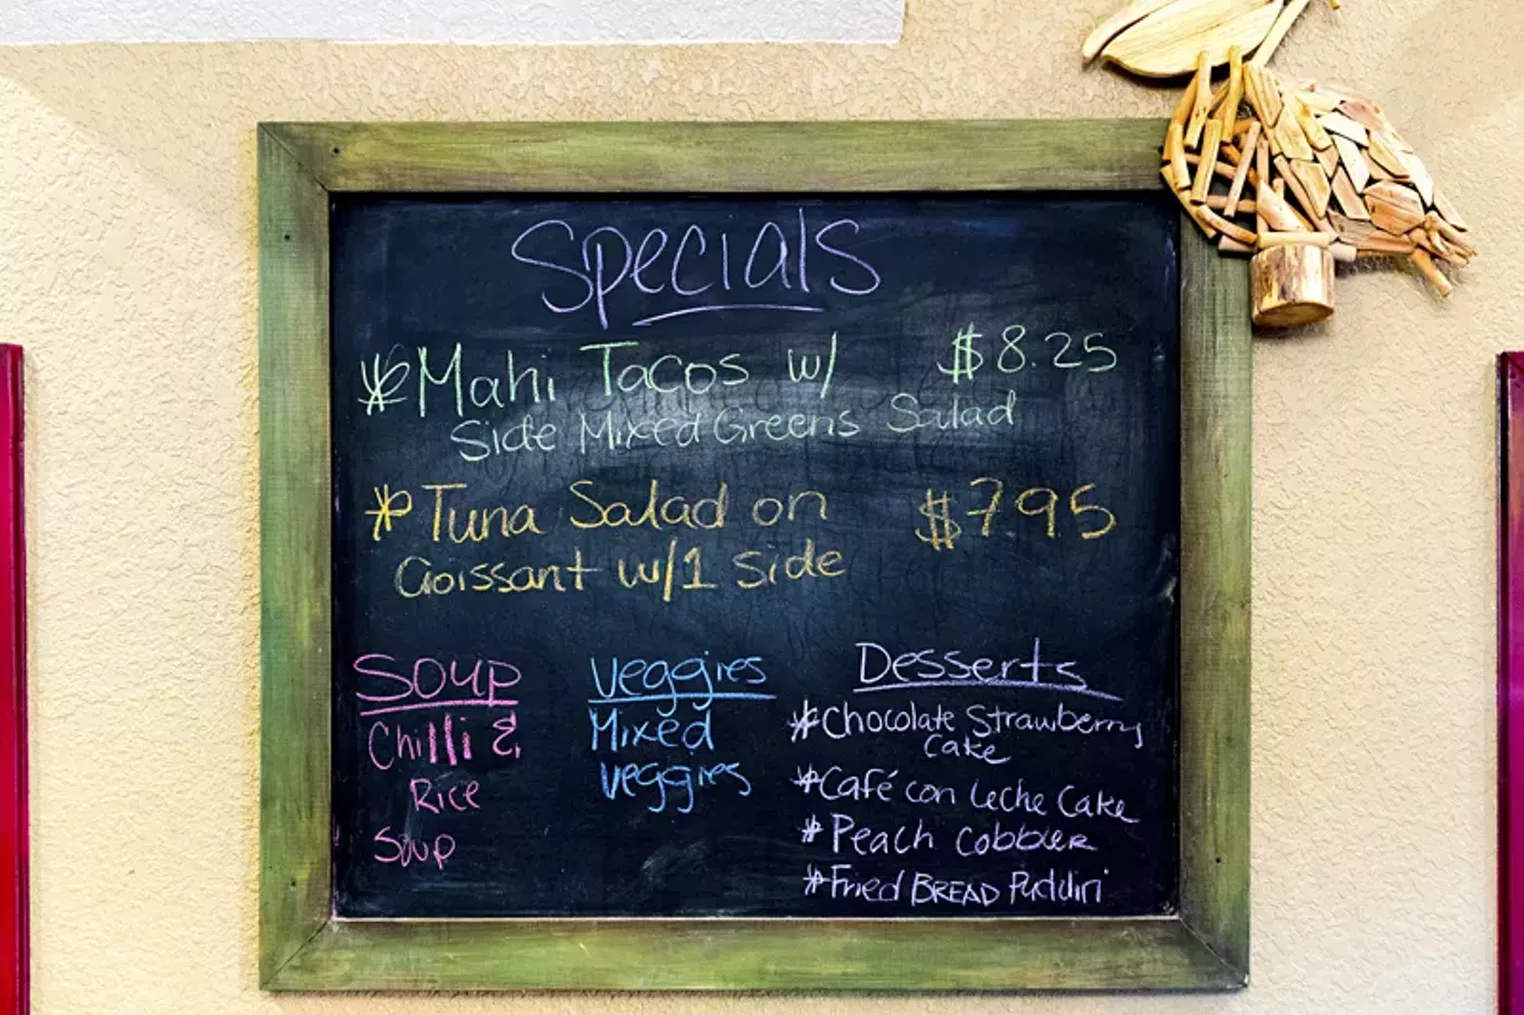 Specials
Mahi Tacos w/ $8.25
Side Mixed Greens Salad
Tuna Salad on $7.95
Croissant w/1 Side
Soup
Chilli &
Rice
Soup
Veggies
Mixed
Veggies
Desserts
Chocolate Strawberry
Cake
Café con Leche Cake
Peach Cobbler
Fried BREAD Puddin